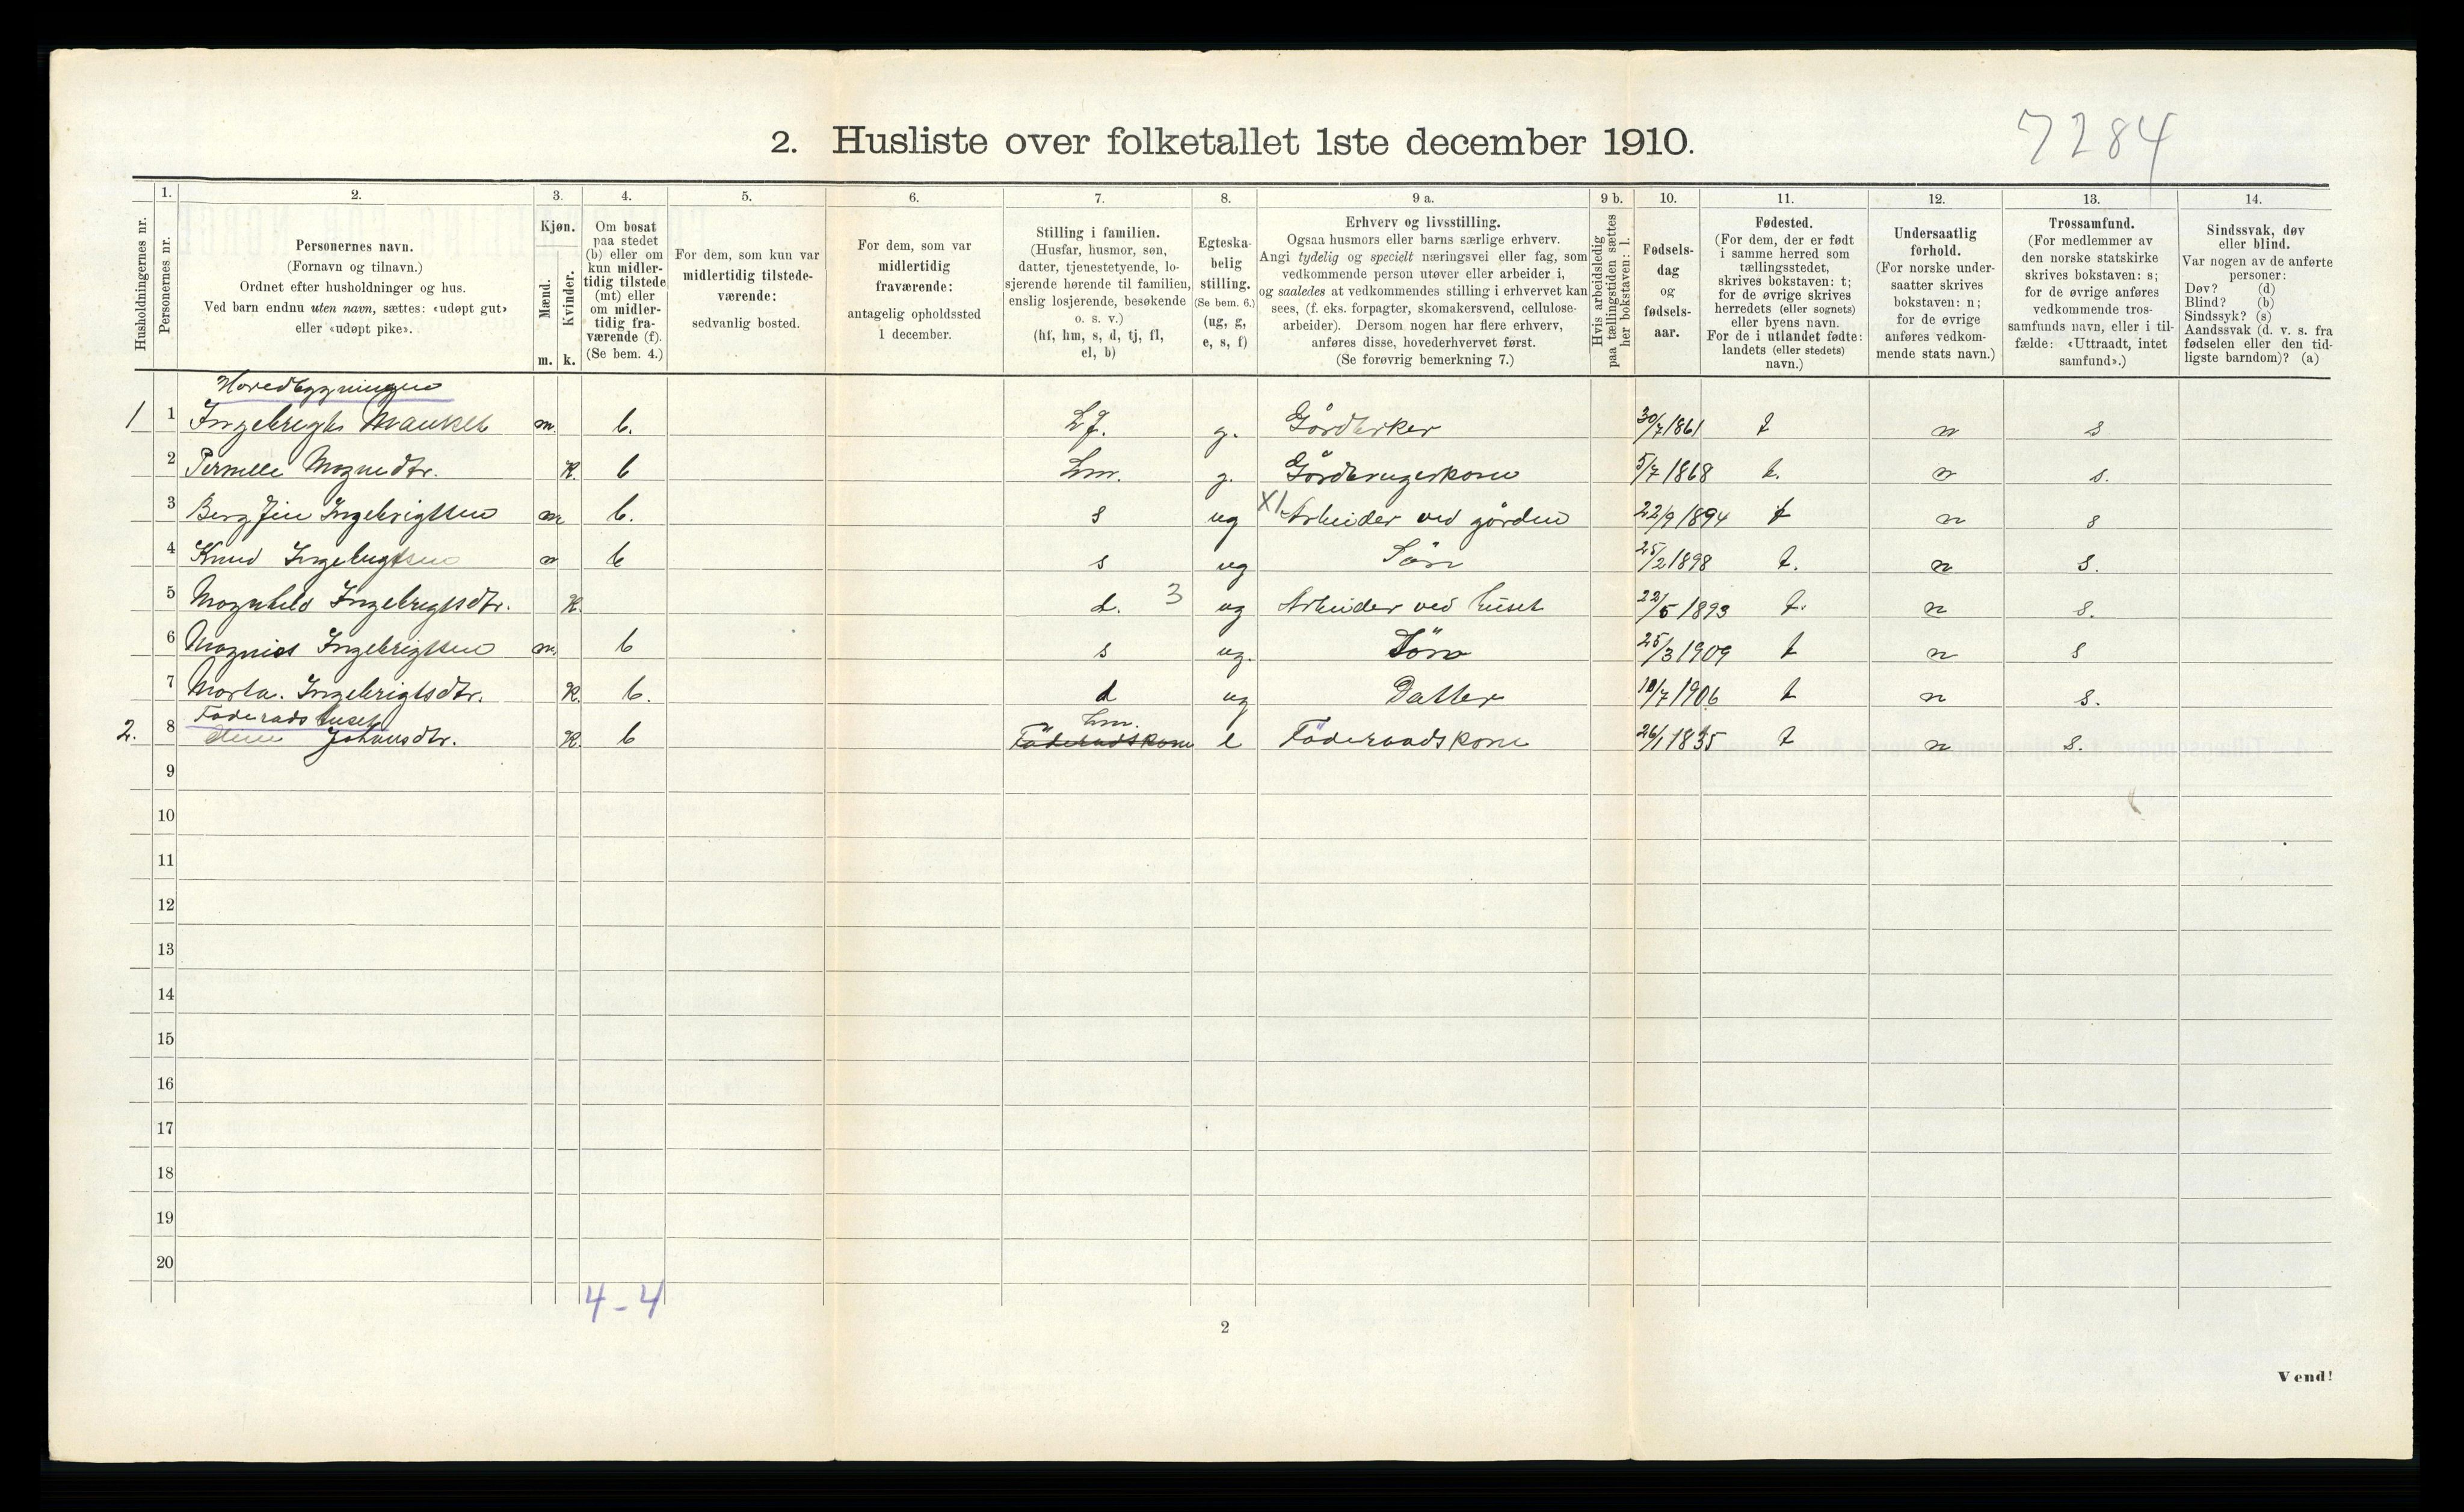 7284
2. Husliste over folketallet 1ste december 1910.
Husholdningernes nr.
1.
Personernes nr.
2.
Personernes navn.
(Fornavn og tilnavn.)
Ordnet efter husholdninger og hus.
Ved barn endnu uten navn, sættes: «udøpt gut»
eller «udøpt pike».
3.
Kjøn.
Mænd.
Kvinder.
m. k.
4.
Om bosat
paa stedet
(b) eller om
kun midler-
tidig tilstede
(mt) eller
om midler-
tidig fra-
værende (f).
(Se bem. 4.)
5.
For dem, som kun var
midlertidig tilstede-
værende:
sedvanlig bosted.
6.
For dem, som var
midlertidig
fraværende:
antagelig opholdssted
1 december.
7.
Stilling i familien.
(Husfar, husmor, søn,
datter, tjenestetyende, lo-
sjerende hørende til familien,
enslig losjerende, besøkende
o. s. v.)
(hf, hm, s, d, tj, fl,
el, b)
8.
Egteska-
belig
stilling.
(Se bem. 6.)
(ug, g,
e, s, f)
9 a.
Erhverv og livsstilling.
Ogsaa husmors eller barns særlige erhverv.
Angi tydelig og specielt næringsvei eller fag, som
vedkommende person utøver eller arbeider i,
og saaledes at vedkommendes stilling i erhvervet kan
sees, (f. eks. forpagter, skomakersvend, cellulose-
arbeider). Dersom nogen har flere erhverv,
anføres disse, hovederhvervet først.
(Se forøvrig bemerkning 7.)
9 b.
Hvis arbeidsledig
paa tællingstiden sættes
her bokstaven: l.
10.
Fødsels-
dag
og
fødsels-
aar.
11.
Fødested.
(For dem, der er født
i samme herred som
tællingsstedet,
skrives bokstaven: t;
for de øvrige skrives
herredets (eller sognets)
eller byens navn.
For de i utlandet fødte:
landets (eller stedets)
navn.)
12.
Undersaatlig
forhold.
(For norske under-
saatter skrives
bokstaven: n;
for de øvrige
anføres vedkom-
mende stats navn.)
13.
Trossamfund.
(For medlemmer av
den norske statskirke
skrives bokstaven: s;
for de øvrige anføres
vedkommende tros-
samfunds navn, eller i til-
fælde: «Uttraadt, intet
samfund».)
14.
Sindssvak, døv
eller blind.
Var nogen av de anførte
personer:
Døv? (d)
Blind? (b)
Sindssyk? (s)
Aandssvak (d. v. s. fra
fødselen eller den tid-
ligste barndom)? (a)
Hovedbygningen
1 1 Ingebrigt m. b. g. 30/7 1861 t n s
2 Pernelle Mognedtr. K. b hm. g. Gårdbrugerkone 5/7 1868 t. n s.
3 Ingebrigtsen m b. s ug X1 Arbeider ved gården 22/9 1894 t n s
4 Knud Ingebrigtsen m b s ug Sön 25/2 1898 t. n s.
5 Mognhild Ingebrigtsdtr. K. d. 3 ug Arbeider ved huset 22/5 1893 t. n s.
6 Ingebrigtsen m. b s ug. Sön 25/3 1909 t n s
7 Marta. Ingebrigtsdtr. K. b. d ug Datter 10/7 1906 t n s.
Föderadshuset hm.
2. 8 Johnsdtr. K. b Föderadskone e Föderaadskone 26/1 1835 t n s.
9
10
11
12
13
14
15
16
17
18
19
20
4 - 4
2
Vend!